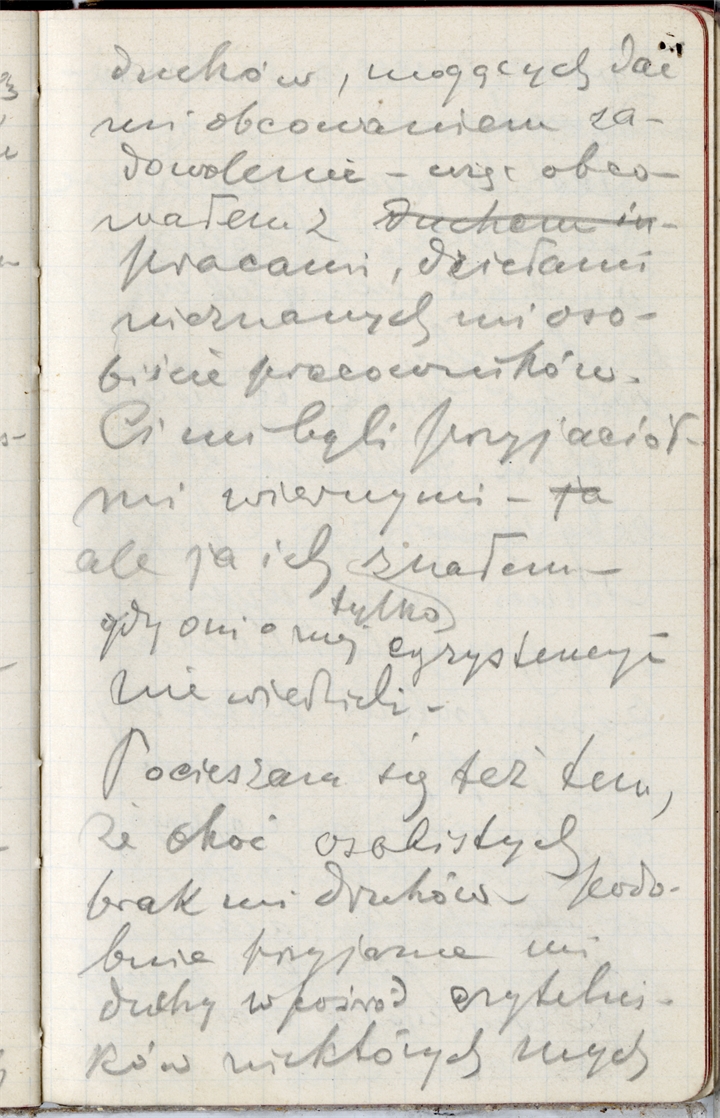 duchów, mogących dać
mi obcowaniem za-
dowolenie – więc obco-
wałem z duchem in-
pracami, dziełami
nieznanych mi oso-
biście pracowników.
Ci mi byli przyjaciół-
mi wiernymi – ja
ale ja ich znałem –
tylko
gdy oni o mej egzystencyi
nie wiedzieli –
Pocieszam się też tem,
że choć osobistych
brak mi druhów – podo-
bnie przyjazne mi
duchy wpośród czytelni-
ków niektórych mych